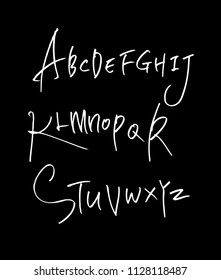 ABCDEFGHIJ
KLMNOPQR
STUVWXYZ
shutterstock.com · 1128118487